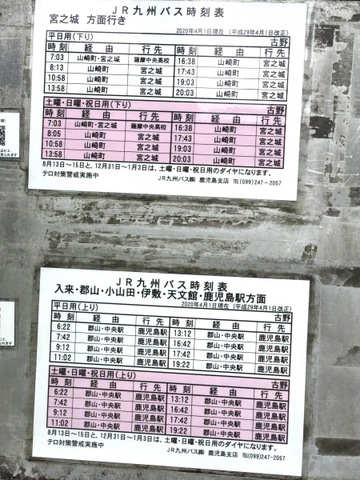 JR九州バス時刻表
宮之城 方面行き
2020年4月1日現在 (平成29年4月1日改正)
平日用(下り) 古野
時刻 経由 行先 時刻 経由 行先
7:03 山崎町・宮之城 薩摩中央高校 16:38 山崎町 宮之城
8:13 山崎町 宮之城 17:43 山崎町 宮之城
10:58 山崎町 宮之城 19:03 山崎町 宮之城
13:58 山崎町 宮之城 20:03 山崎町 宮之城
土曜・日曜・祝日用(下り) 古野
時刻 経由 行先 時刻 経由 行先
7:03 山崎町・宮之城 薩摩中央高校 16:38 山崎町 宮之城
8:05 山崎町 宮之城 17:43 山崎町 宮之城
10:58 山崎町 宮之城 19:03 山崎町 宮之城
13:58 山崎町 宮之城 20:03 山崎町 宮之城
8月13日〜15日と、12月31日〜1月3日は、土曜・日曜・祝日用のダイヤになります。
テロ対策警戒実施中 JR九州バス㈱ 鹿児島支店 ℡(099)247-2057
JR九州バス時刻表
入来・郡山・小山田・伊敷・天文館・鹿児島駅方面
2020年4月1日現在 (平成29年4月1日改正)
平日用(上り) 古野
時刻 経由 行先 時刻 経由 行先
6:22 郡山・中央駅 鹿児島駅 13:12 郡山・中央駅 鹿児島駅
7:42 郡山・中央駅 鹿児島駅 16:42 郡山・中央駅 鹿児島駅
9:12 郡山・中央駅 鹿児島駅 17:42 郡山・中央駅 鹿児島駅
11:02 郡山・中央駅 鹿児島駅 19:22 郡山・中央駅 鹿児島駅
土曜・日曜・祝日用(上り) 古野
時刻 経由 行先 時刻 経由 行先
6:22 郡山・中央駅 鹿児島駅 13:12 郡山・中央駅 鹿児島駅
7:42 郡山・中央駅 鹿児島駅 16:42 郡山・中央駅 鹿児島駅
9:12 郡山・中央駅 鹿児島駅 17:42 郡山・中央駅 鹿児島駅
11:02 郡山・中央駅 鹿児島駅 19:22 郡山・中央駅 鹿児島駅
8月13日〜15日と、12月31日〜1月3日は、土曜・日曜・祝日用のダイヤになります。
テロ対策警戒実施中 JR九州バス㈱ 鹿児島支店 ℡(099)247-2057